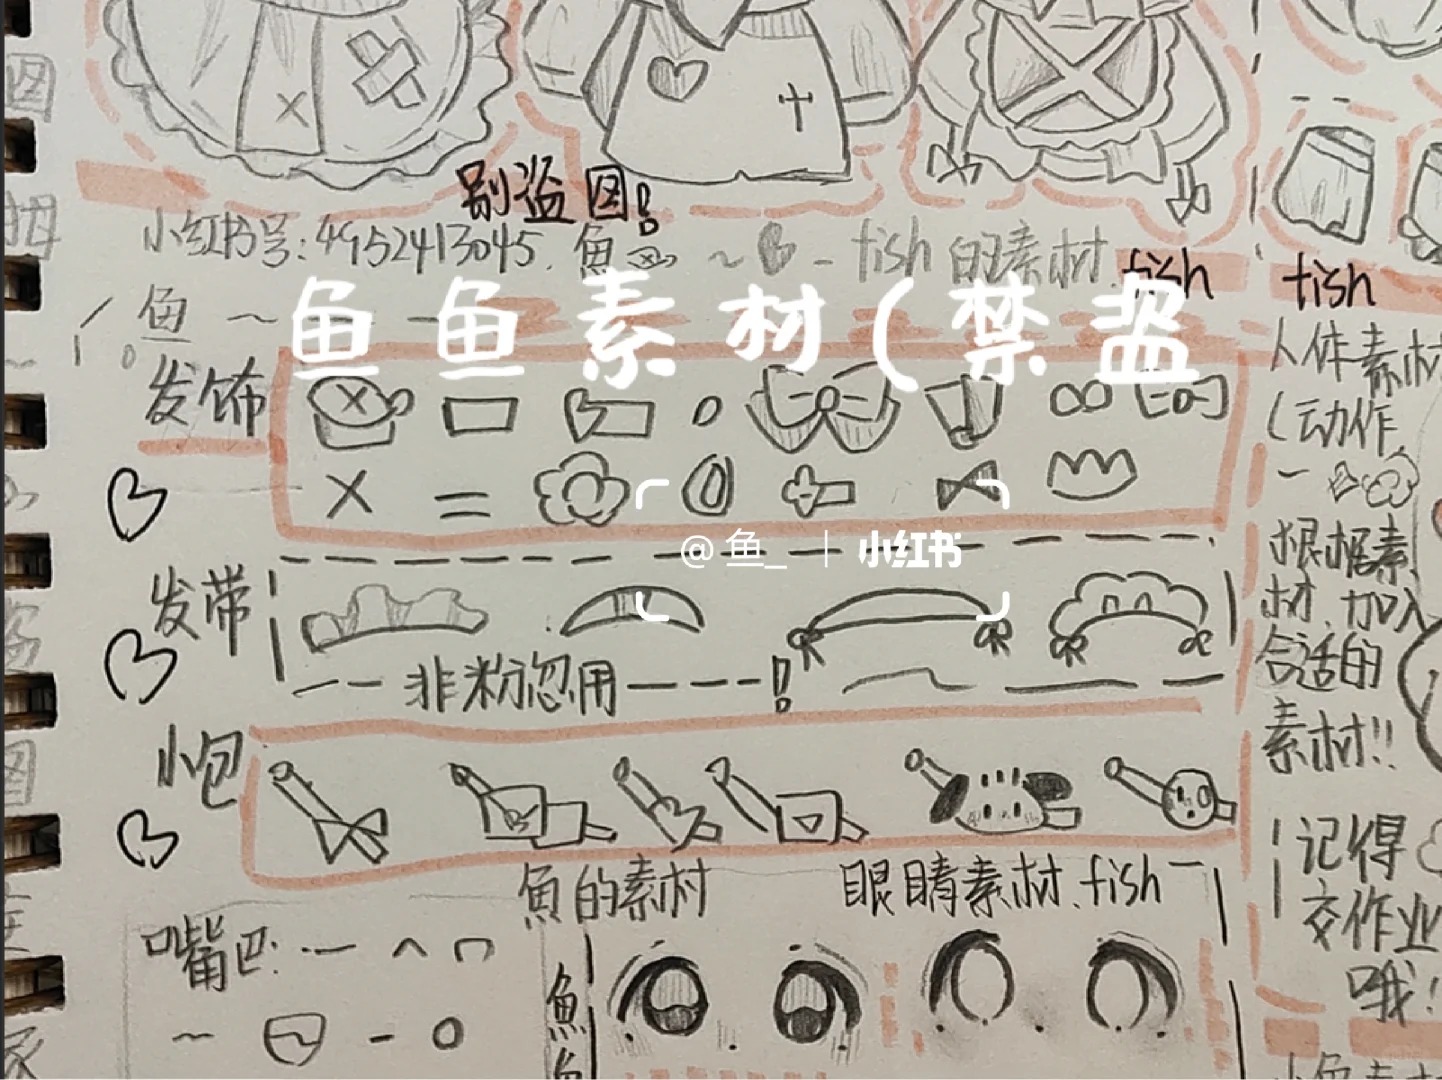 别盗图!
小红书号:4952413045. 魚 ~ - fish 的素材.
fish
fish
鱼 ~
鱼鱼素材(禁盗
发饰
@鱼_ | 小红书
发带
非粉忽用!
小包
魚的素材
眼睛素材.fish
嘴巴:
魚
人体素材
(动作
根据素
材,加入
合适的
素材!!
记得
交作业
哦!